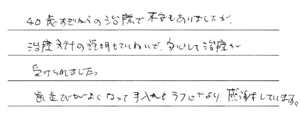 40歳すぎからの治療で不安もありましたが、
治療方針の説明もていねいで、安心して治療が
受けられました。
歯並びがよくなって手入れもラフになり、感謝しています。